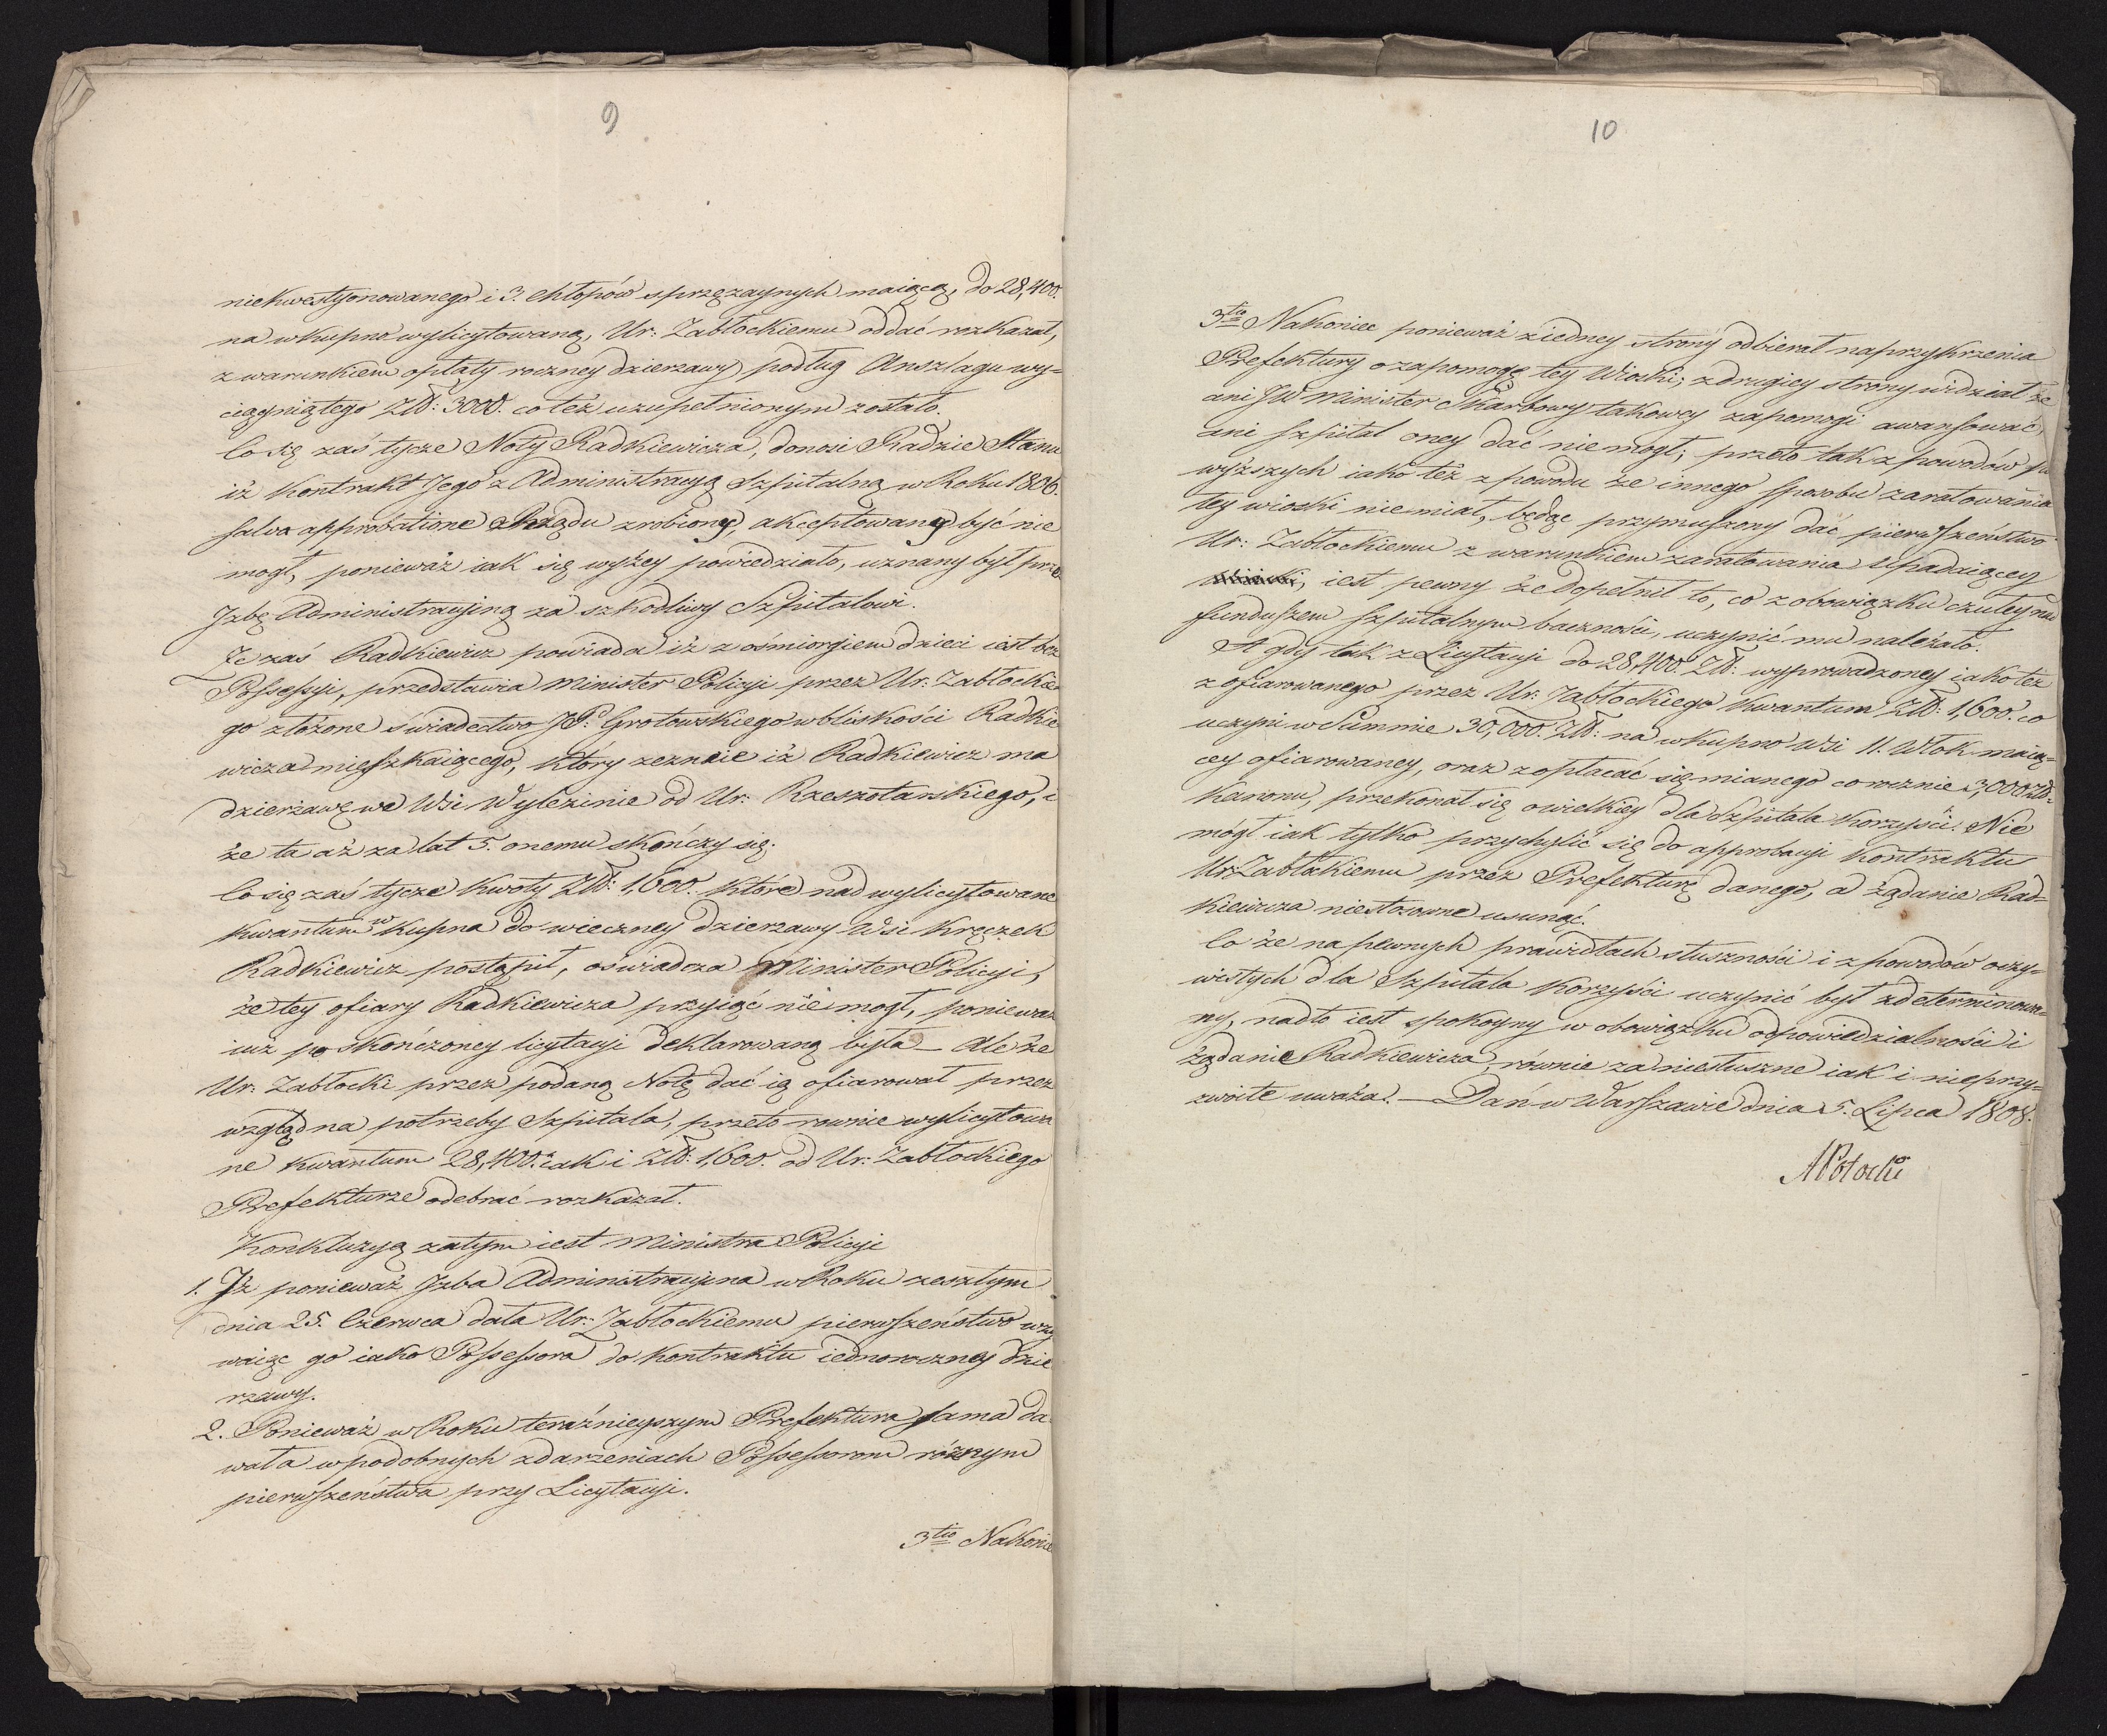 9
niekwestyonowanego i 3. chłopów sprzężaynych maiącą, do 28,400.
na wkupno wylicytowaną, Ur: Zabłockiemu oddać rozkazał,
z warunkiem opłaty roczney dzierzawy podług Anszlagu wy=
ciągniątego Złł: 3000. co też uzupełnionym zostało.
Co się zaś tycze Noty Radkiewicza, donosi Radzie Stanu
iż Kontrakt Jego z Administracyą Szpitalną w Roku 1806.
salva approbatione Rządu zrobiony, akceptowany być nie
mogł, ponieważ iak się wyżey powiedziało, uznany był prze
Jzbę Administracyiną za szkodliwy Szpitalowi.
Że zaś Radkiewicz powiada iż z ośmiorgiem dzieci iest bez
Possessyi, przedstawia Minister Policyi przez Ur: Zabłockie
go złożone świadectwo JP. Grotowskiego w bliskości Radkie
wicza mięszkaiącego, który zeznaie iż Radkiewicz ma
dzierżawę we Wsi Wylezinie od Ur: Rzeszotarskiego, i
że ta aż za lat 5. onemu skończy się.
Co się zaś tycze Kwoty Złł: 1,600. które nad wylicytowane
kwantum wkupna do wieczney dzierzawy Wsi Kręczek
Radkiewicz postąpił, oświadcza Minister Policyi,
że tey ofiary Radkiewicza przyiąć nie mogł, ponieważ
iuż po skończoney licytacyi deklarowaną była – Ale że
Ur: Zabłocki przez podaną Notę dać ią ofiarował przez
wzgląd na potrzeby Szpitala, przeto rownie wylicytowa
ne kwantum 28,400. iak i Złł: 1,600. od Ur: Zabłockiego
Prefekturze odebrać rozkazał.
Konkluzyą zatym iest Ministra Policyi
1. Jż ponieważ Jzba Administracyina w Roku zeszłym
dnia 25. Czerwca dała Ur: Zabłockiemu pierwszeństwo wzy
waiąc go iako Possessora do Kontraktu iednoroczney dzie
rzawy.
2. Ponieważ w Roku teraźnieyszym Prefektura sama da
wała w podobnych zdarzeniach Possessorom różnym
pierwszeństwa przy Licytacyi.
3tio Nakonie
10
3tio Nakoniec ponieważ z iedney strony odbierał naprzykrzenia
Prefektury o zapomogę tey Wioski; z drugiey strony widział że
ani JW Minister Skarbowy takowey zapomogi awansować,
ani Szpital oney dać nie mogł; przeto tak z powodów po
wyższych iako też z powodu że innego sposobu zaratowania
tey wioski nie miał, będąc przymuszony dać pierwszeństwo
Ur: Zabłockiemu z warunkiem zaratowania upadaiącey
wioski, iest pewny że dopełnił to, co z obowiązku czułey nad
funduszem szpitalnym baczności, uczynić mu należało.
A gdy tak z Licytacyi do 28,400. Złł: wyprowadzoney iako też
z ofiarowanego przez Ur: Zabłockiego kwantum Złł: 1,600. co
uczyni w Summie 30,000. Złł: na wkupno Wsi 11. Włok maią=
cey ofiarowaney, oraz z opłacać się mianego corocznie 3,000 Złł:
Kanonu, przekonał się o wielkiey dla Szpitala korzyści. Nie
mógł iak tylko przychylić się do approbacyi Kontraktu
Ur: Zabłockiemu przez Prefekturę danego, a żądanie Rad=
kiewicza niestosowne usunąć.
Co że na pewnych prawidłach słuszności i z powodów oczy=
wistych dla Szpitala korzyści uczynić był zdeterminowa=
ny, nadto iest spokoyny w obowiązku odpowiedzialności i
żądanie Radkiewicza, równie za niesłuszne iak i nieprzy=
zwoite uważa. — Dań w Warszawie dnia 5. Lipca 1808.
APotocki